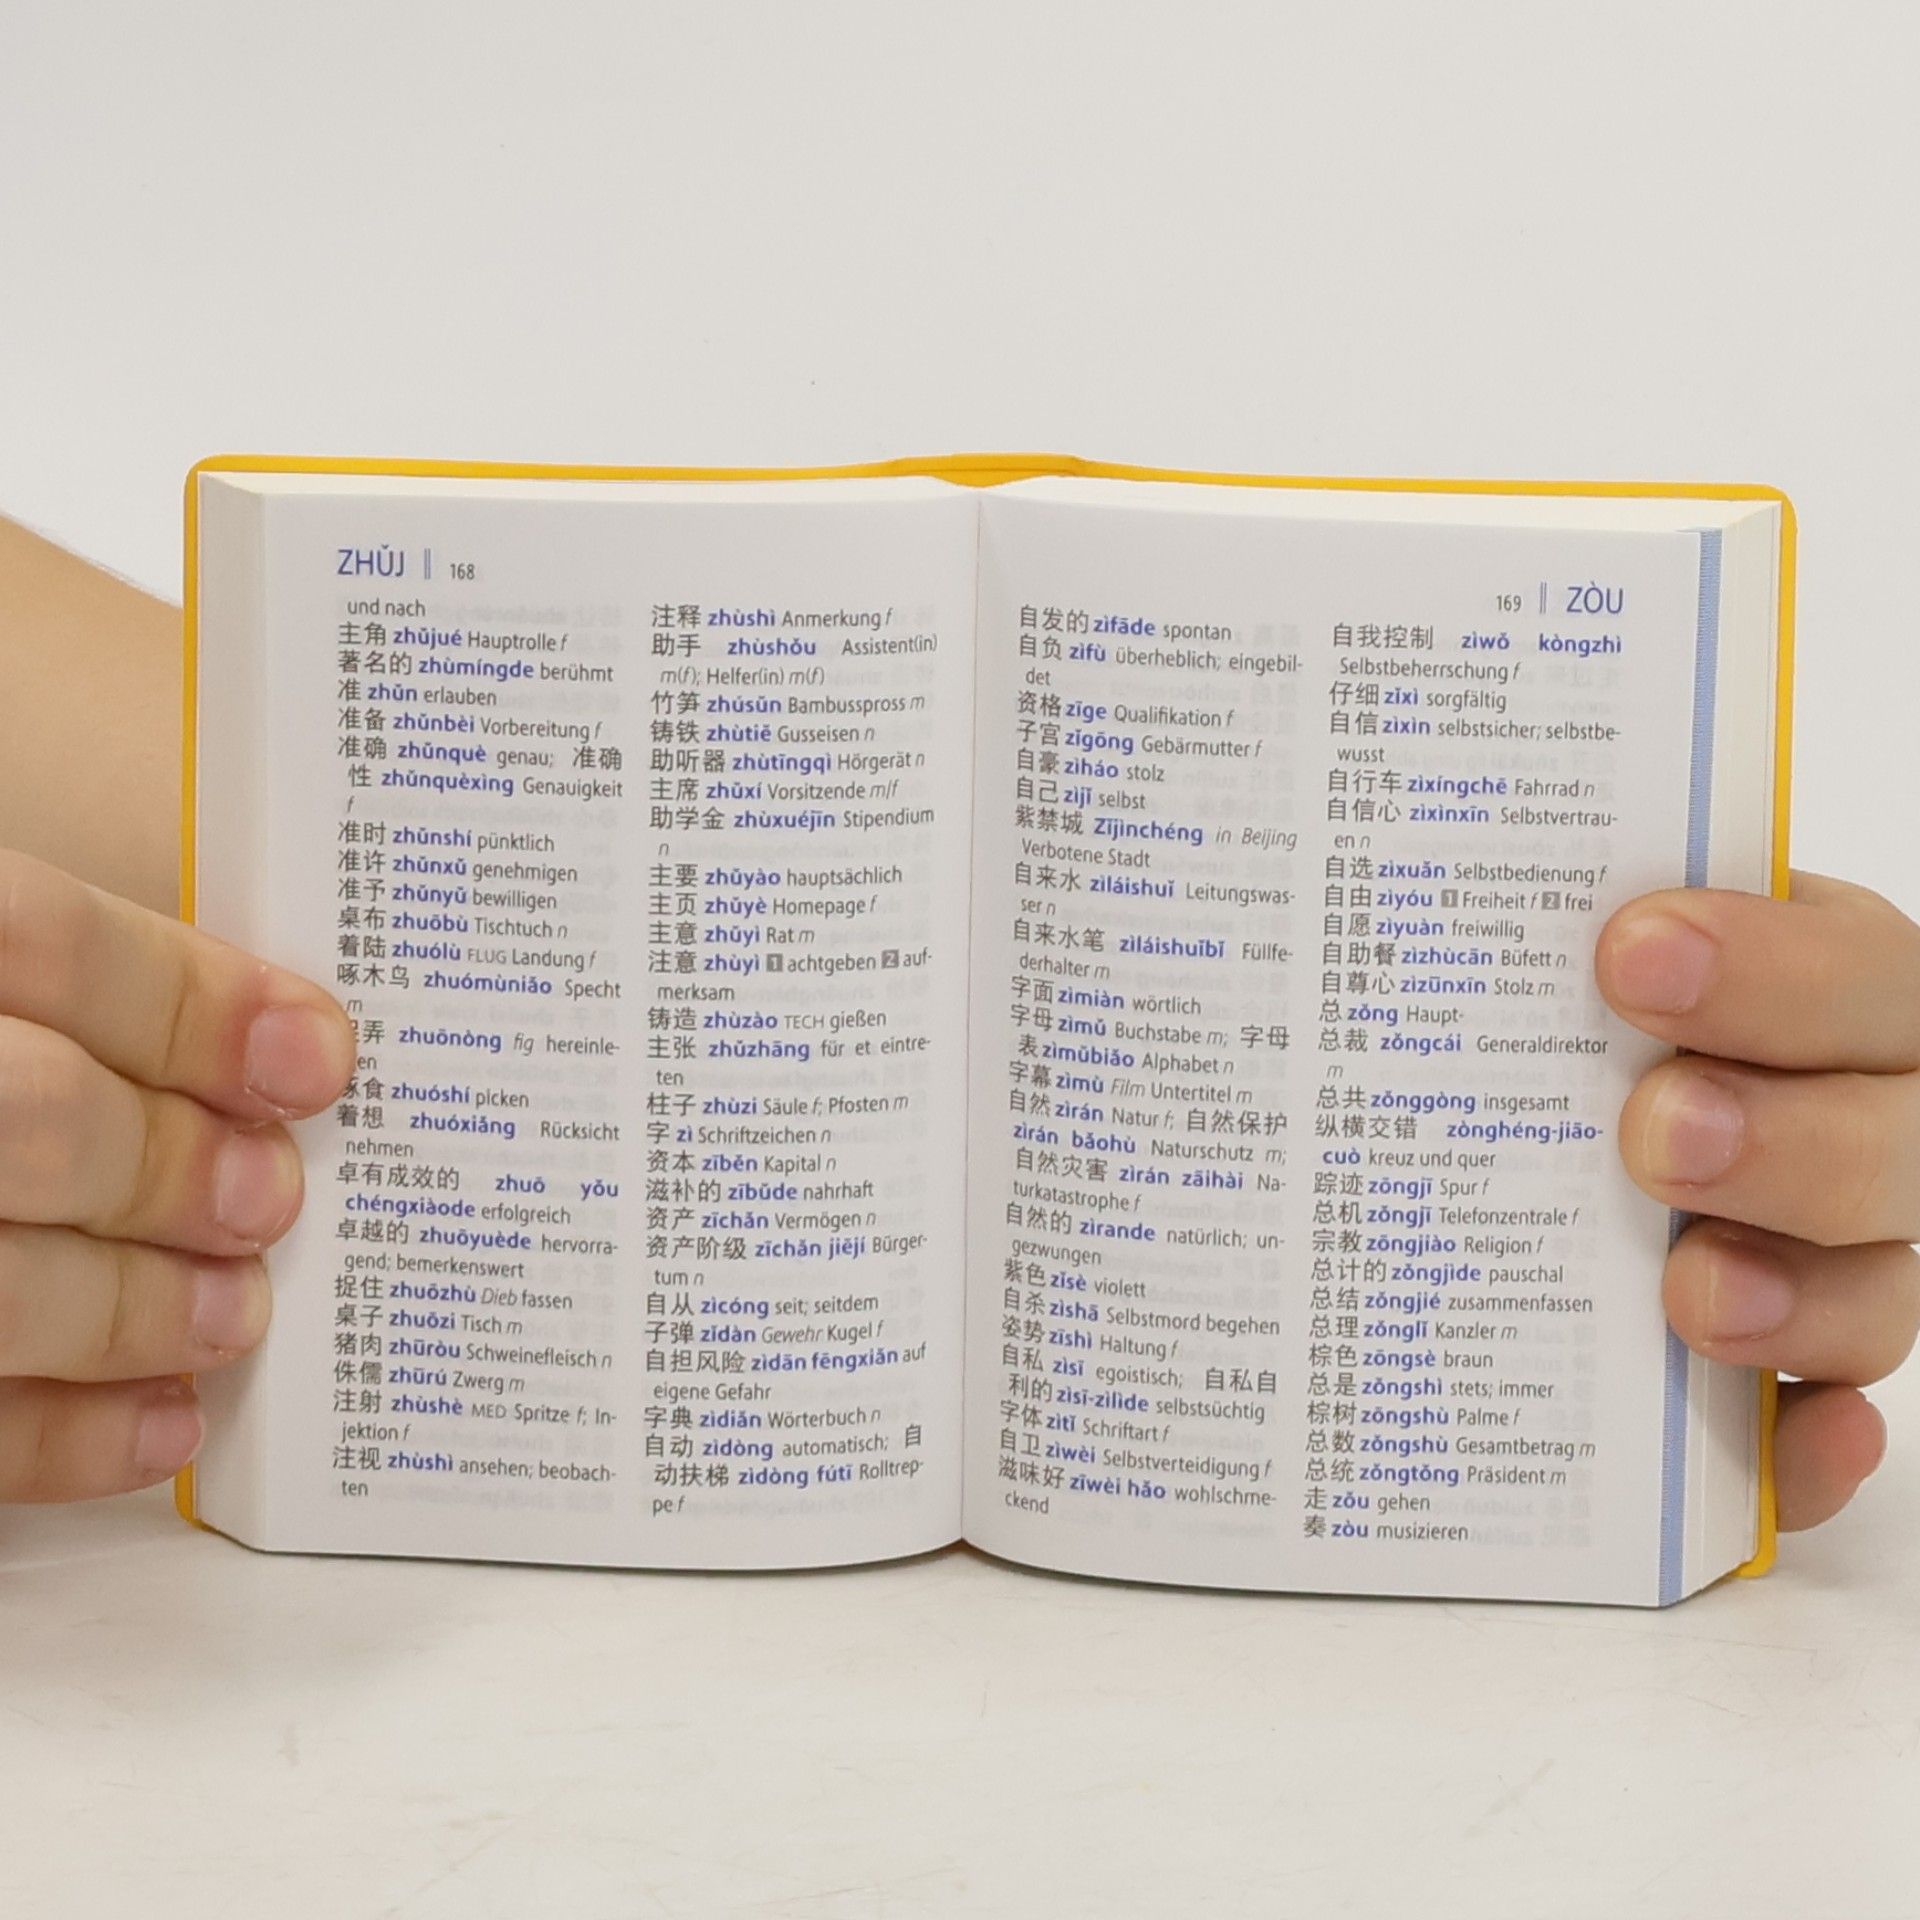 ZHǓJ ‖ 168
und nach
主角 zhǔjué Hauptrolle f
著名的 zhùmíngde berühmt
准 zhǔn erlauben
准备 zhǔnbèi Vorbereitung f
准确 zhǔnquè genau; 准确
性 zhǔnquèxìng Genauigkeit
f
准时 zhǔnshí pünktlich
准许 zhǔnxǔ genehmigen
准予 zhǔnyǔ bewilligen
桌布 zhuōbù Tischtuch n
着陆 zhuólù FLUG Landung f
啄木鸟 zhuómùniǎo Specht
m
弄 zhuōnòng fig hereinle-
en
食 zhuóshí picken
着想 zhuóxiǎng Rücksicht
nehmen
卓有成效的 zhuō yǒu
chéngxiàode erfolgreich
卓越的 zhuōyuède hervorra-
gend; bemerkenswert
捉住 zhuōzhù Dieb fassen
桌子 zhuōzi Tisch m
猪肉 zhūròu Schweinefleisch n
侏儒 zhūrú Zwerg m
注射 zhùshè MED Spritze f; In-
jektion f
注视 zhùshì ansehen; beobach-
ten
注释 zhùshì Anmerkung f
助手 zhùshǒu Assistent(in)
m(f); Helfer(in) m(f)
竹笋 zhúsǔn Bambusspross m
铸铁 zhùtiě Gusseisen n
助听器 zhùtīngqì Hörgerät n
主席 zhǔxí Vorsitzende m/f
助学金 zhùxuéjīn Stipendium
n
主要 zhǔyào hauptsächlich
主页 zhǔyè Homepage f
主意 zhǔyì Rat m
注意 zhùyì 1 achtgeben 2 auf-
merksam
铸造 zhùzào TECH gießen
主张 zhǔzhāng für et eintre-
ten
柱子 zhùzi Säule f; Pfosten m
字 zì Schriftzeichen n
资本 zīběn Kapital n
滋补的 zībǔde nahrhaft
资产 zīchǎn Vermögen n
资产阶级 zīchǎn jiējí Bürger-
tum n
自从 zìcóng seit; seitdem
子弹 zǐdàn Gewehr Kugel f
自担风险 zìdān fēngxiǎn auf
eigene Gefahr
字典 zìdiǎn Wörterbuch n
自动 zìdòng automatisch; 自
动扶梯 zìdòng fútī Rolltrep-
pe f
169 ‖ ZÒU
自发的 zìfāde spontan
自负 zìfù überheblich; eingebil-
det
资格 zīge Qualifikation f
子宫 zǐgōng Gebärmutter f
自豪 zìháo stolz
自己 zìjǐ selbst
紫禁城 Zǐjìnchéng in Beijing
Verbotene Stadt
自来水 zìláishuǐ Leitungswas-
ser n
自来水笔 zìláishuǐbǐ Füllfe-
derhalter m
字面 zìmiàn wörtlich
字母 zìmǔ Buchstabe m; 字母
表 zìmǔbiǎo Alphabet n
字幕 zìmù Film Untertitel m
自然 zìrán Natur f; 自然保护
zìrán bǎohù Naturschutz m;
自然灾害 zìrán zāihài Na-
turkatastrophe f
自然的 zìrande natürlich; un-
gezwungen
紫色 zǐsè violett
自杀 zìshā Selbstmord begehen
姿势 zīshì Haltung f
自私 zìsī egoistisch; 自私自
利的 zìsī-zìlìde selbstsüchtig
字体 zìtǐ Schriftart f
自卫 zìwèi Selbstverteidigung f
滋味好 zīwèi hǎo wohlschme-
ckend
自我控制 zìwǒ kòngzhì
Selbstbeherrschung f
仔细 zǐxì sorgfältig
自信 zìxìn selbstsicher; selbstbe-
wusst
自行车 zìxíngchē Fahrrad n
自信心 zìxìnxīn Selbstvertrau-
en n
自选 zìxuǎn Selbstbedienung f
自由 zìyóu 1 Freiheit f 2 frei
自愿 zìyuàn freiwillig
自助餐 zìzhùcān Büfett n
自尊心 zìzūnxīn Stolz m
总 zǒng Haupt-
总裁 zǒngcái Generaldirektor
m
总共 zǒnggòng insgesamt
纵横交错 zònghéng-jiāo-
cuò kreuz und quer
踪迹 zōngjī Spur f
总机 zǒngjī Telefonzentrale f
宗教 zōngjiào Religion f
总计的 zǒngjìde pauschal
总结 zǒngjié zusammenfassen
总理 zǒnglǐ Kanzler m
棕色 zōngsè braun
总是 zǒngshì stets; immer
棕树 zōngshù Palme f
总数 zǒngshù Gesamtbetrag m
总统 zǒngtǒng Präsident m
走 zǒu gehen
奏 zòu musizieren